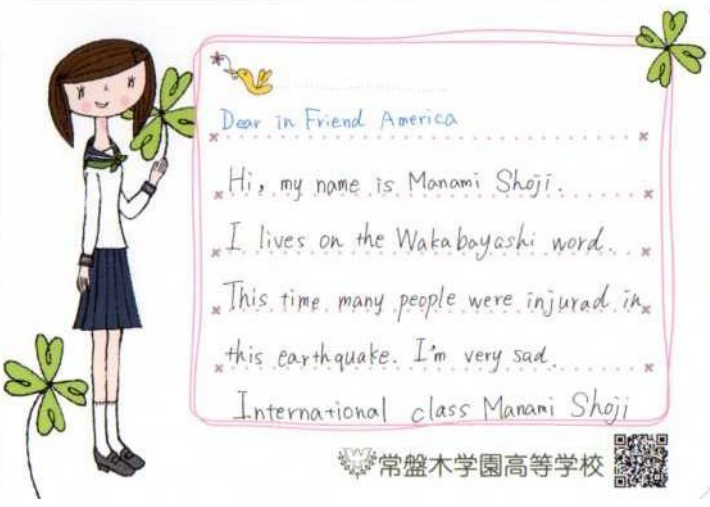 Dear in Friend America
Hi, my name is Manami Shoji.
I lives on the Wakabayashi word.
This time many people were injurad in
this earthquake. I'm very sad.
International class Manami Shoji
常盤木学園高等学校